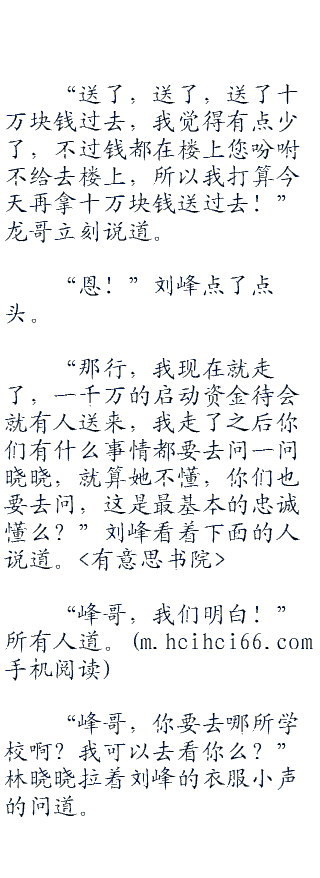 “送了，送了，送了十
万块钱过去，我觉得有点少
了，不过钱都在楼上您吩咐
不给去楼上，所以我打算今
天再拿十万块钱送过去！”
龙哥立刻说道。
“恩！”刘峰点了点
头。
“那行，我现在就走
了，一千万的启动资金待会
就有人送来，我走了之后你
们有什么事情都要去问一问
晓晓，就算她不懂，你们也
要去问，这是最基本的忠诚
懂么？”刘峰看着下面的人
说道。<有意思书院>
“峰哥，我们明白！”
所有人道。(m.hcihci66.com
手机阅读)
“峰哥，你要去哪所学
校啊？我可以去看你么？”
林晓晓拉着刘峰的衣服小声
的问道。